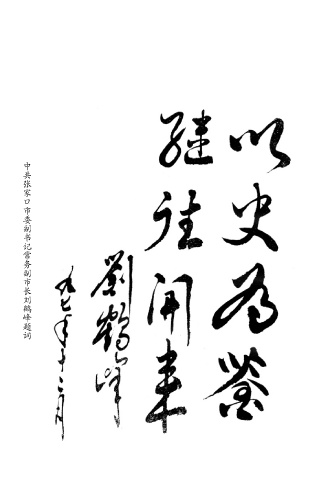 以史为鉴
继往开来
刘鹤峰
九七年十二月
中共张家口市委副书记常务副市长刘鹤峰题词